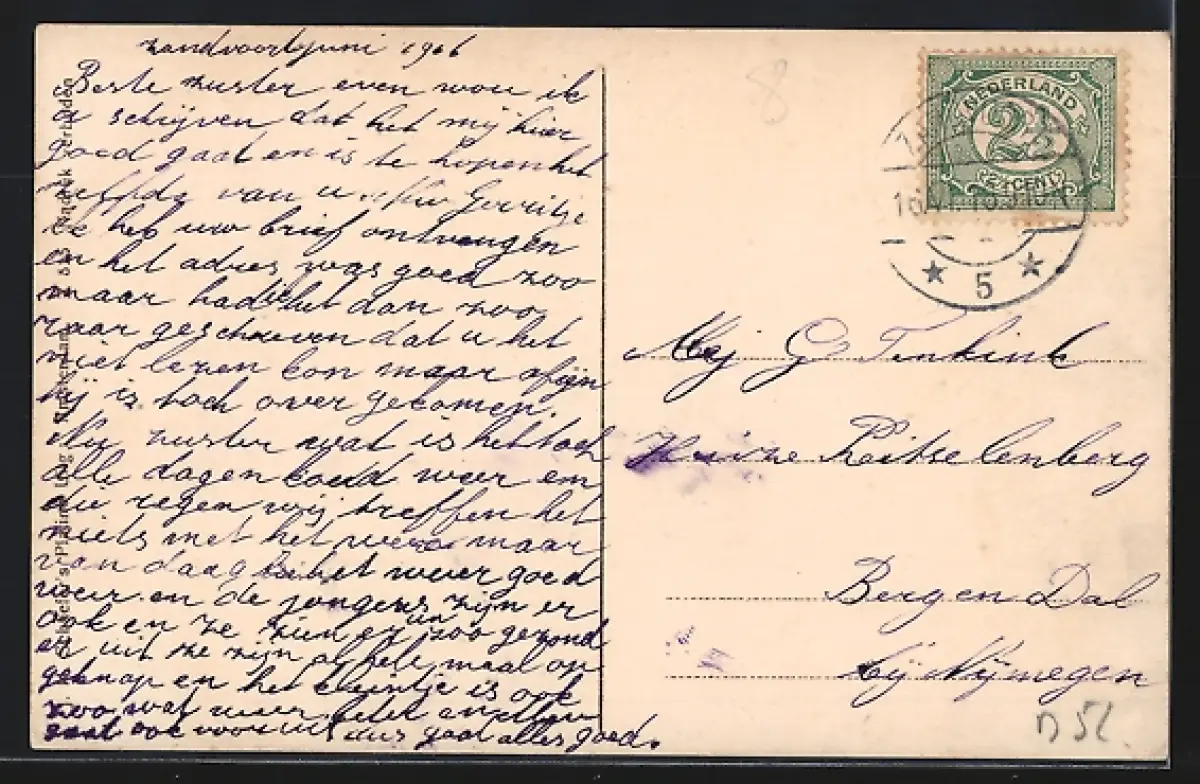 Zandvoort juni 1916
Beste zuster even wou ik
u schrijven dat het mij hier
goed gaat en is te hopen het
zelfde van u. Gerritje
ik heb uw brief ontvangen
en het adres was goed zoo
maar had het dan zoo
raar geschreven dat u het
niet lezen kon maar afijn
hij is toch over gekomen.
Nu zuster wat is het toch
alle dagen koud weer em
die regen wij treffen het
niets met het weer maar
van daag is het weer goed
weer en de jongens zijn er
ook en ze zien er zoo gezond
uit ze zijn al hele maal op
geknap en het kleintje is ook
zoo wat weer beter en
gaat ook vooruit dus gaat alles goed.
NEDERLAND
2½
2½ CENT
5
Mej G Tenkink
Huize Reitselenberg
Berg en Dal
bij Nijmegen
8
D 52.